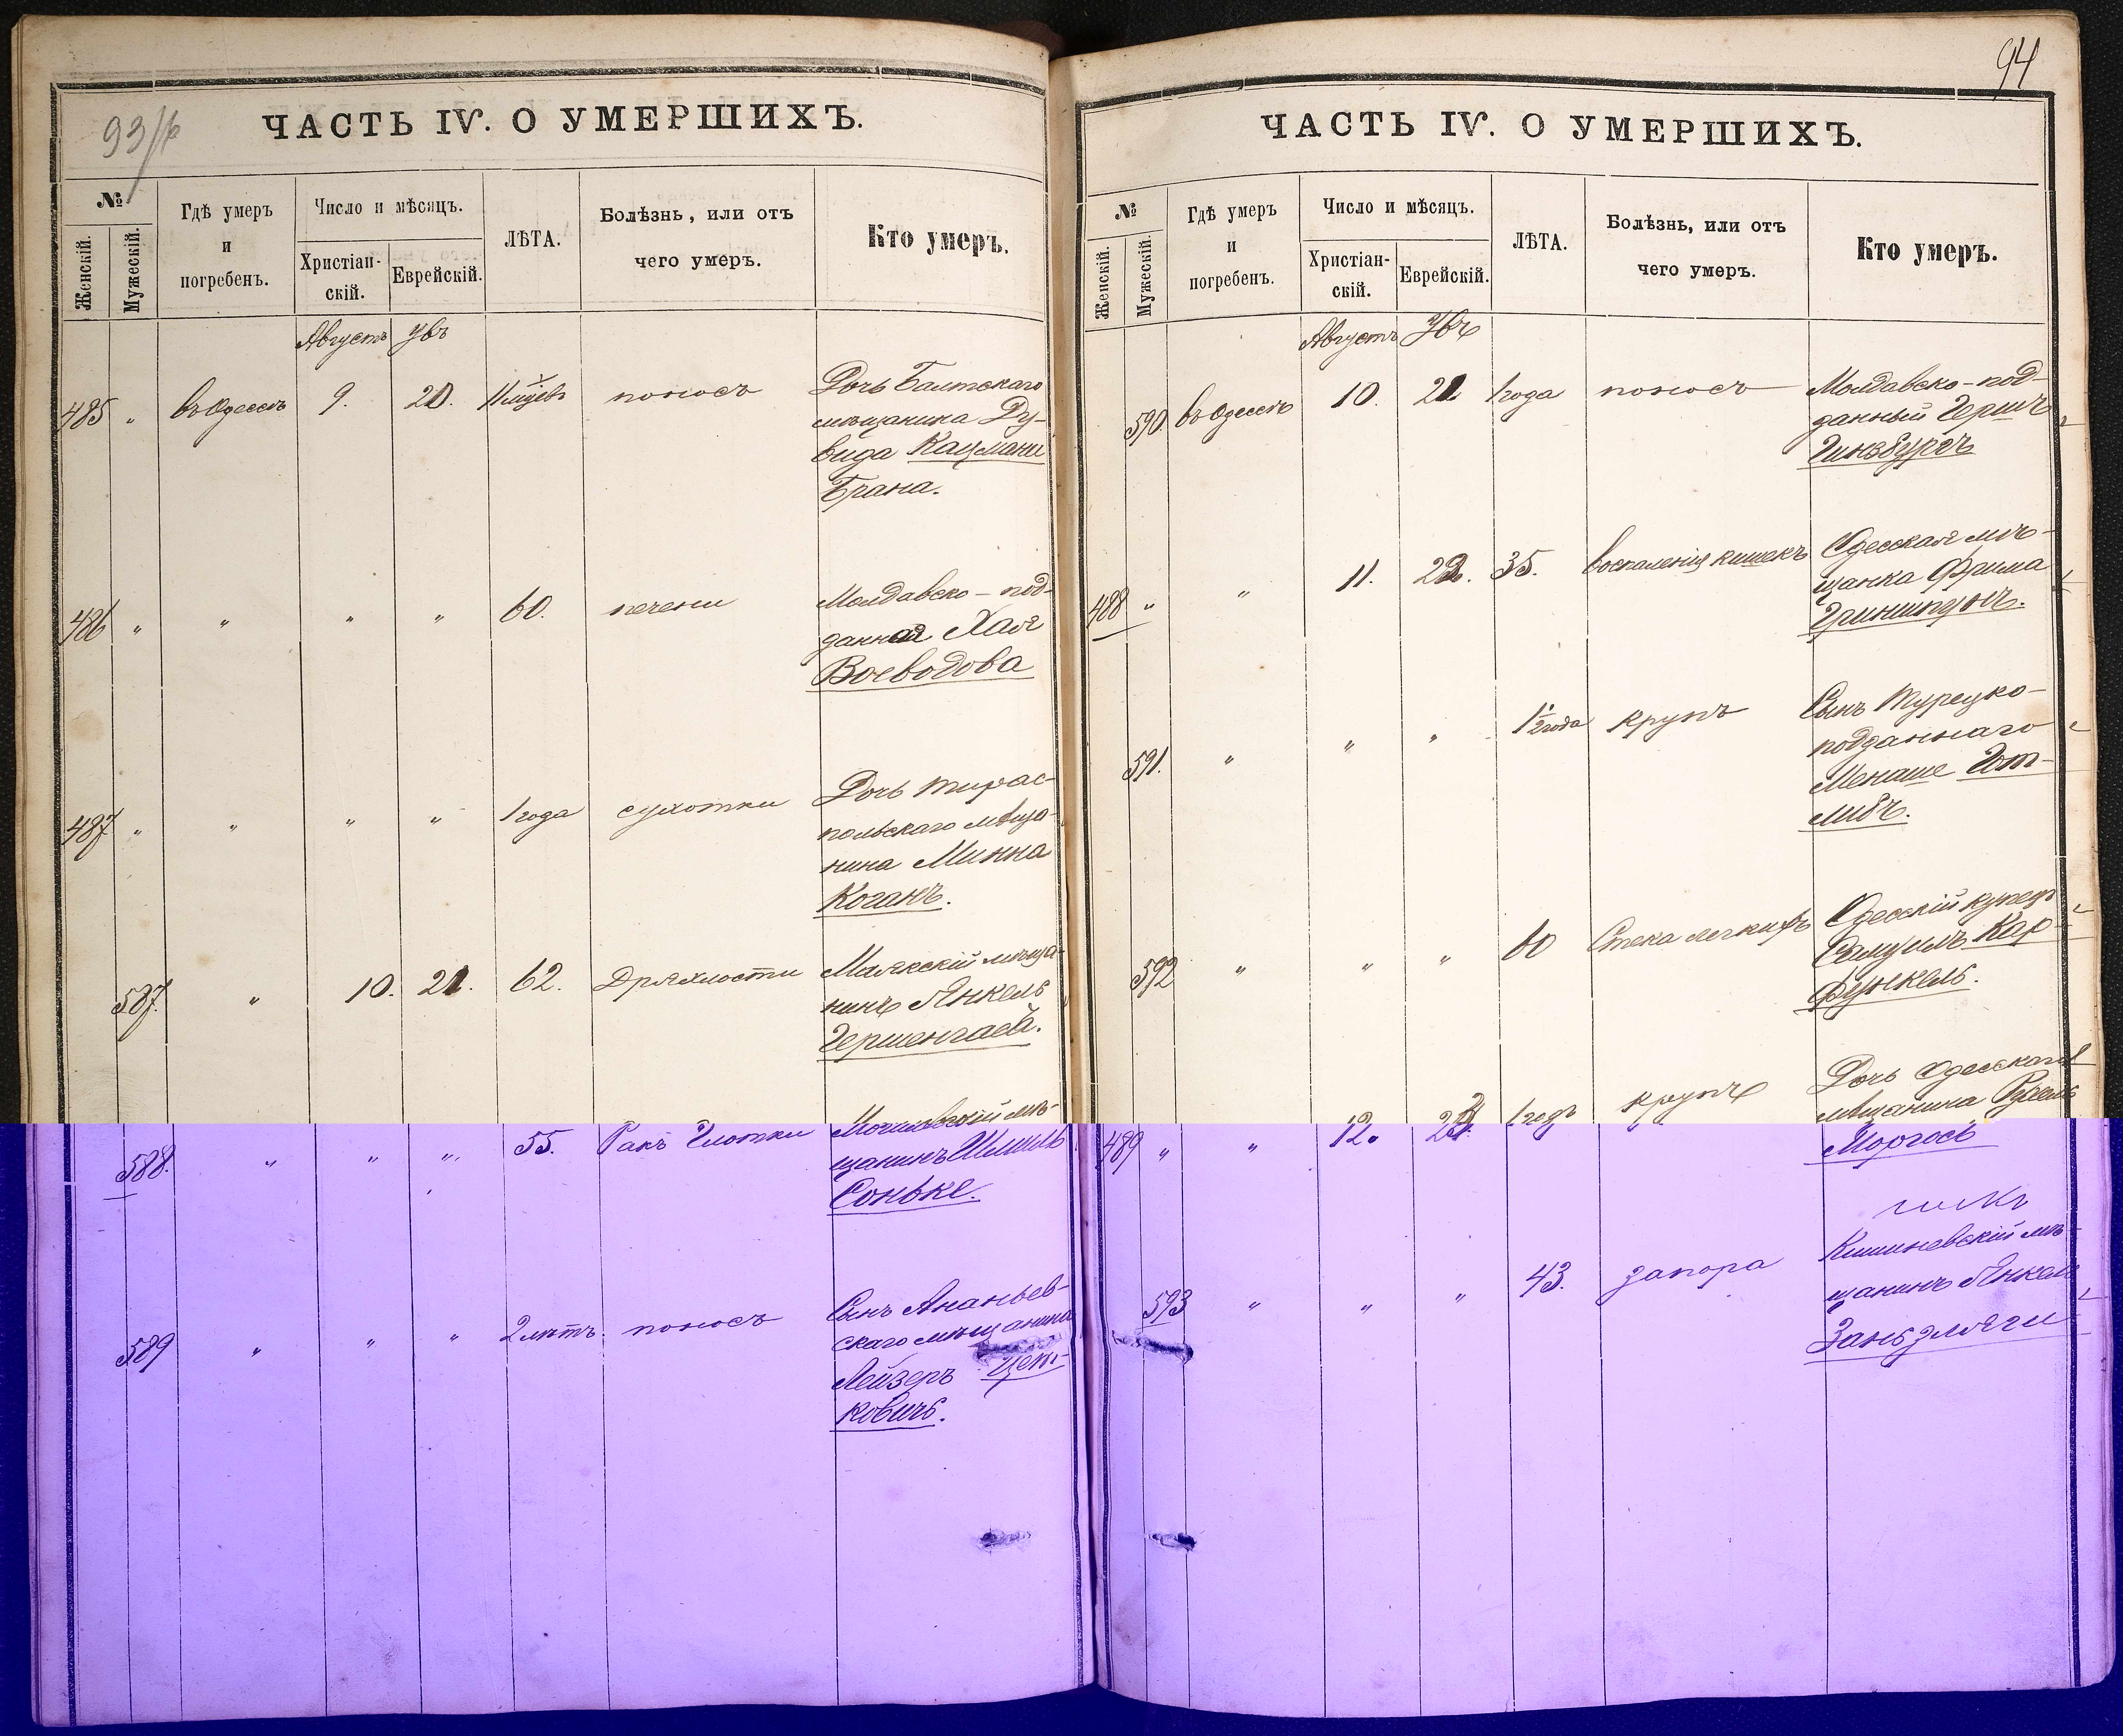 93/об
ЧАСТЬ IV. О УМЕРШИХЪ.
№
Женскій.
Мужескій.
Гдѣ умеръ
и
погребенъ.
Число и мѣсяцъ.
Христіан-
скій.
Еврейскій.
ЛѢТА.
Болѣзнь, или отъ
чего умеръ.
Кто умеръ.
Августъ
485 " въ Одессѣ 9. 20. 11 мцевъ поносъ Дочь Балтскаго
мѣщанина Ду-
вида Кацмани
Брана.
486 " " " " 60. печени Молдавско-под-
данная Хая
Воеводова
487 " " " " 1 года сухотки Дочь тирас-
польскаго мѣща-
нина Минна
Коганъ.
587. " 10. 21. 62. Дряхлости Маякскій мѣща-
нинъ Янкель
588. " " " 55. Ракъ Глотки Могилевскій мѣ-
щанинъ Шмиль
Соньке.
589 " " " 2 лѣтъ. поносъ Сынъ Ананьев-
скаго мѣщанина
Лейзеръ Цет-
ковичъ.
94
ЧАСТЬ IV. О УМЕРШИХЪ.
№
Женскій.
Мужескій.
Гдѣ умеръ
и
погребенъ.
Число и мѣсяцъ.
Христіан-
скій.
Еврейскій.
ЛѢТА.
Болѣзнь, или отъ
чего умеръ.
Кто умеръ.
Августъ
590. въ Одессѣ 10. 21 1 года поносъ Молдавско-под-
данный Гершъ
Гинзбургъ
488 " " 11. 22. 35. воспаленія кишекъ Одесская мѣ-
щанка Фрима
Гриншпунъ.
591. " " " 1 1/2 года крупъ Сынъ Турецко-
подданнаго
Менаше Гот-
либъ.
592 " " " 60 Отека легкихъ Одесскій купецъ
Самуилъ Кар-
функель.
489 " " 12. 23. 1 годъ крупъ Дочь Одесскаго
мѣщанина
Моргосъ
593 " " " 43. запора Кишиневскій мѣ-
щанинъ Янкель